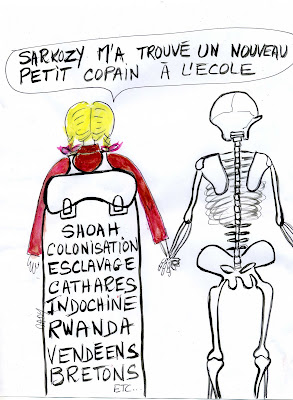 SARKOZY M'A TROUVÉ UN NOUVEAU
PETIT COPAIN À L'ECOLE
SHOAH
COLONISATION
ESCLAVAGE
CATHARES
INDOCHINE
RWANDA
VENDÉENS
BRETONS
ETC..